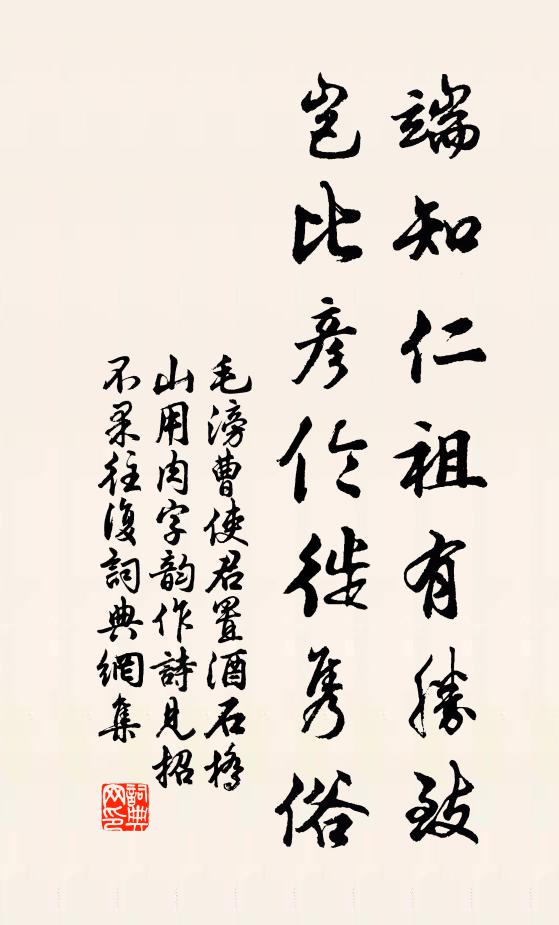 端知仁祖有勝致
岂比彦伦徙隽俗
毛滂曹使君置酒石橋
山用肉字韵作詩見招
不果往復詞典網集
詞典网印